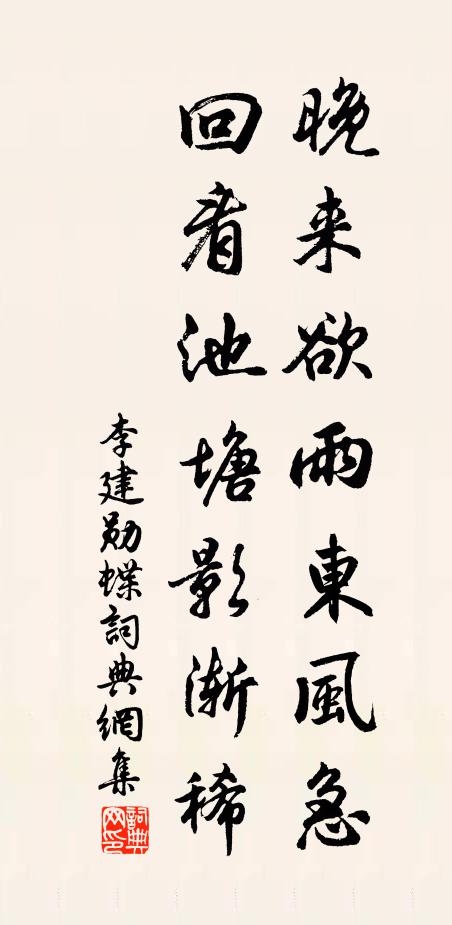 晚来欲雨東風急
回看池塘影漸稀
李建勋蝶詞典網集
詞典网印